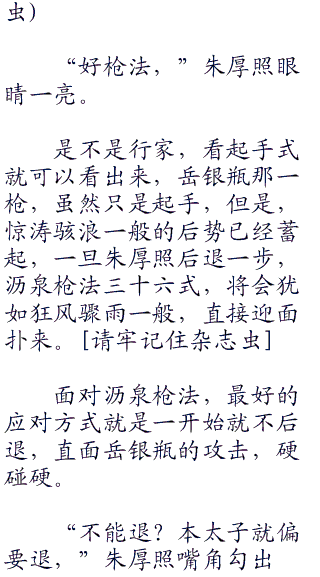 虫）
“好枪法，”朱厚照眼
睛一亮。
是不是行家，看起手式
就可以看出来，岳银瓶那一
枪，虽然只是起手，但是，
惊涛骇浪一般的后势已经蓄
起，一旦朱厚照后退一步，
沥泉枪法三十六式，将会犹
如狂风骤雨一般，直接迎面
扑来。[请牢记住杂志虫]
面对沥泉枪法，最好的
应对方式就是一开始就不后
退，直面岳银瓶的攻击，硬
碰硬。
“不能退？本太子就偏
要退，”朱厚照嘴角勾出